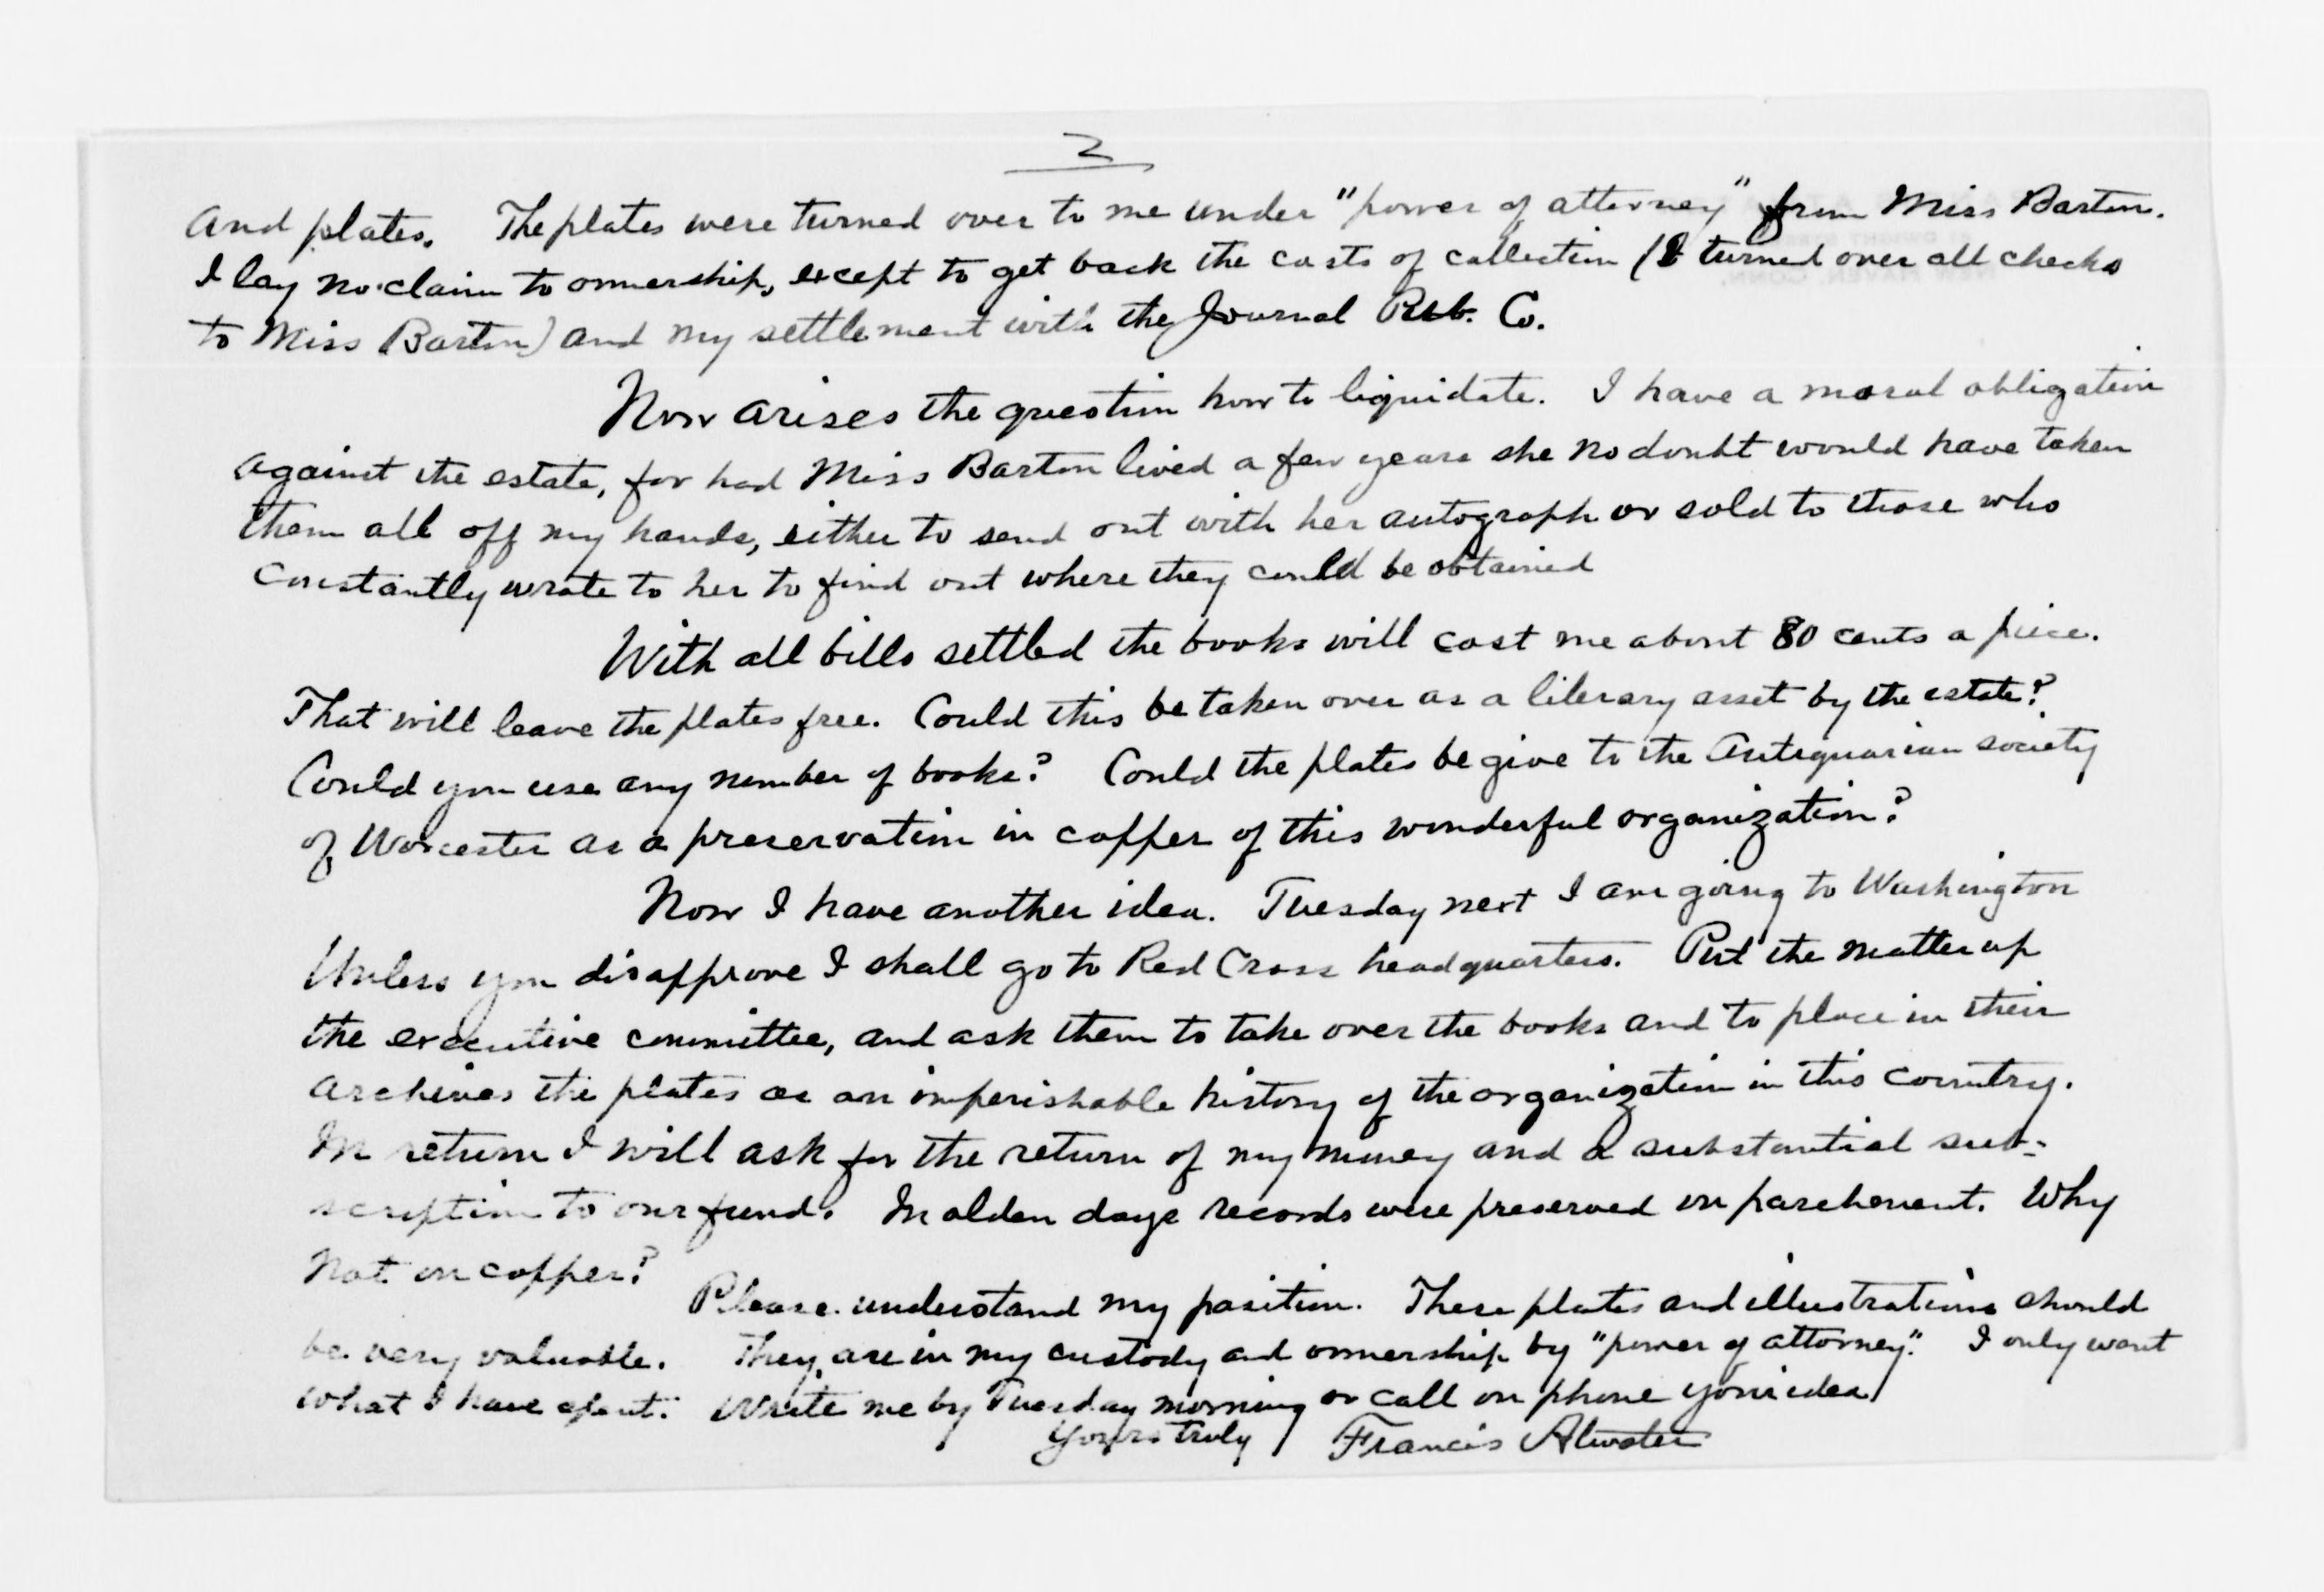 2
and plates. The plates were turned over to me under "power of attorney" from Miss Barton.
I lay no claim to ownership, except to get back the costs of collection (I turned over all checks
to Miss Barton) and my settlement with the Journal Pub. Co.
Now arises the question how to liquidate. I have a moral obligation
against the estate, for had Miss Barton lived a few years she no doubt would have taken
them all off my hands, either to send out with her autograph or sold to those who
constantly wrote to her to find out where they could be obtained
With all bills settled the books will cost me about 80 cents a piece.
That will leave the plates free. Could this be taken over as a literary asset by the estate?
Could you use any number of books? Could the plates be give to the Antiquarian society
of Worcester as a preservation in copper of this wonderful organization?
Now I have another idea. Tuesday next I am going to Washington
Unless you disapprove I shall go to Red Cross headquarters. Put the matter up
the executive committee, and ask them to take over the books and to place in their
archives the plates as an imperishable history of the organization in this country.
In return I will ask for the return of my money and a substantial sub-
scription to our fund. In olden days records were preserved on parchment. Why
not on copper?
Please understand my position. These plates and illustrations should
be very valuable. They are in my custody and ownership by "power of attorney". I only want
what I have spent. Write me by Tuesday morning or call on phone your idea
Yours truly Francis Atwater